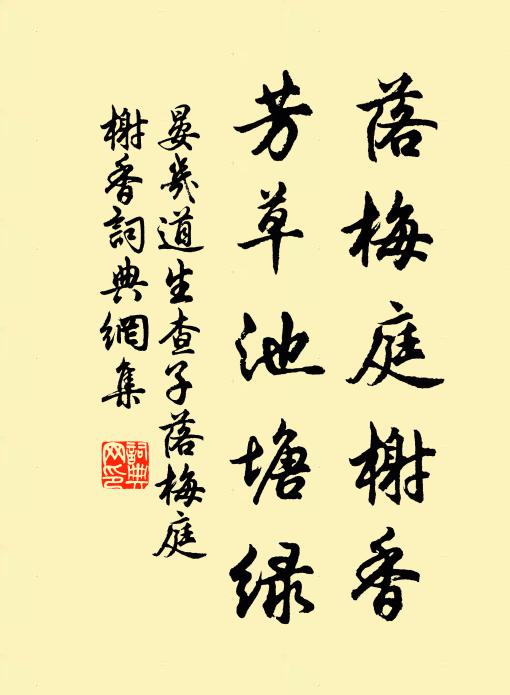 落梅庭榭香
芳草池塘绿
晏幾道生查子落梅庭
榭香詞典網集
詞典网印